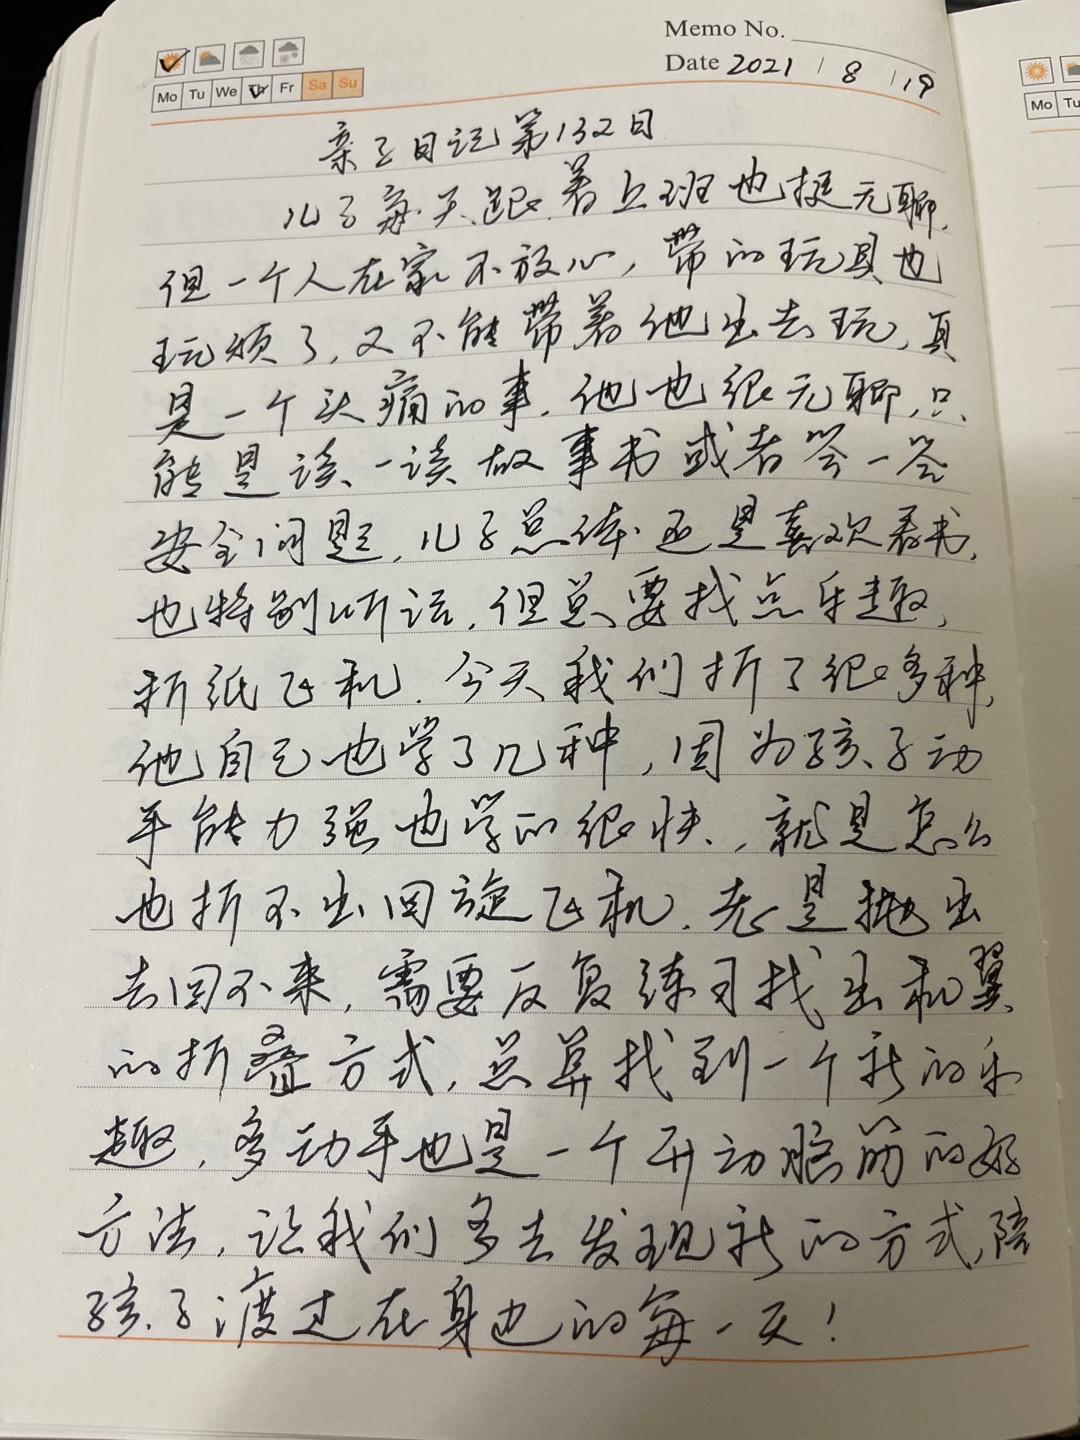 Memo No.
Mo Tu We Th Fr Sa Su
Date 2021 / 8 / 19
Mo Tu
亲子日记第132日
儿子每天跟着上班也挺无聊,
但一个人在家不放心, 带的玩具也
玩烦了, 又不能带着他出去玩, 真
是一个头痛的事. 他也很无聊, 只
能是读一读故事书或者答一答
安全问题, 儿子总体还是喜欢看书,
也特别听话, 但总要找点乐趣,
折纸飞机. 今天我们折了很多种,
他自己也学了几种, 因为孩子动
手能力强也学的很快, 就是怎么
也折不出回旋飞机. 老是抛出
去回不来, 需要反复练习找出机翼
的折叠方式, 总算找到一个新的乐
趣, 多动手也是一个开动脑筋的好
方法, 让我们多去发现新的方式, 陪
孩子渡过在身边的每一天!